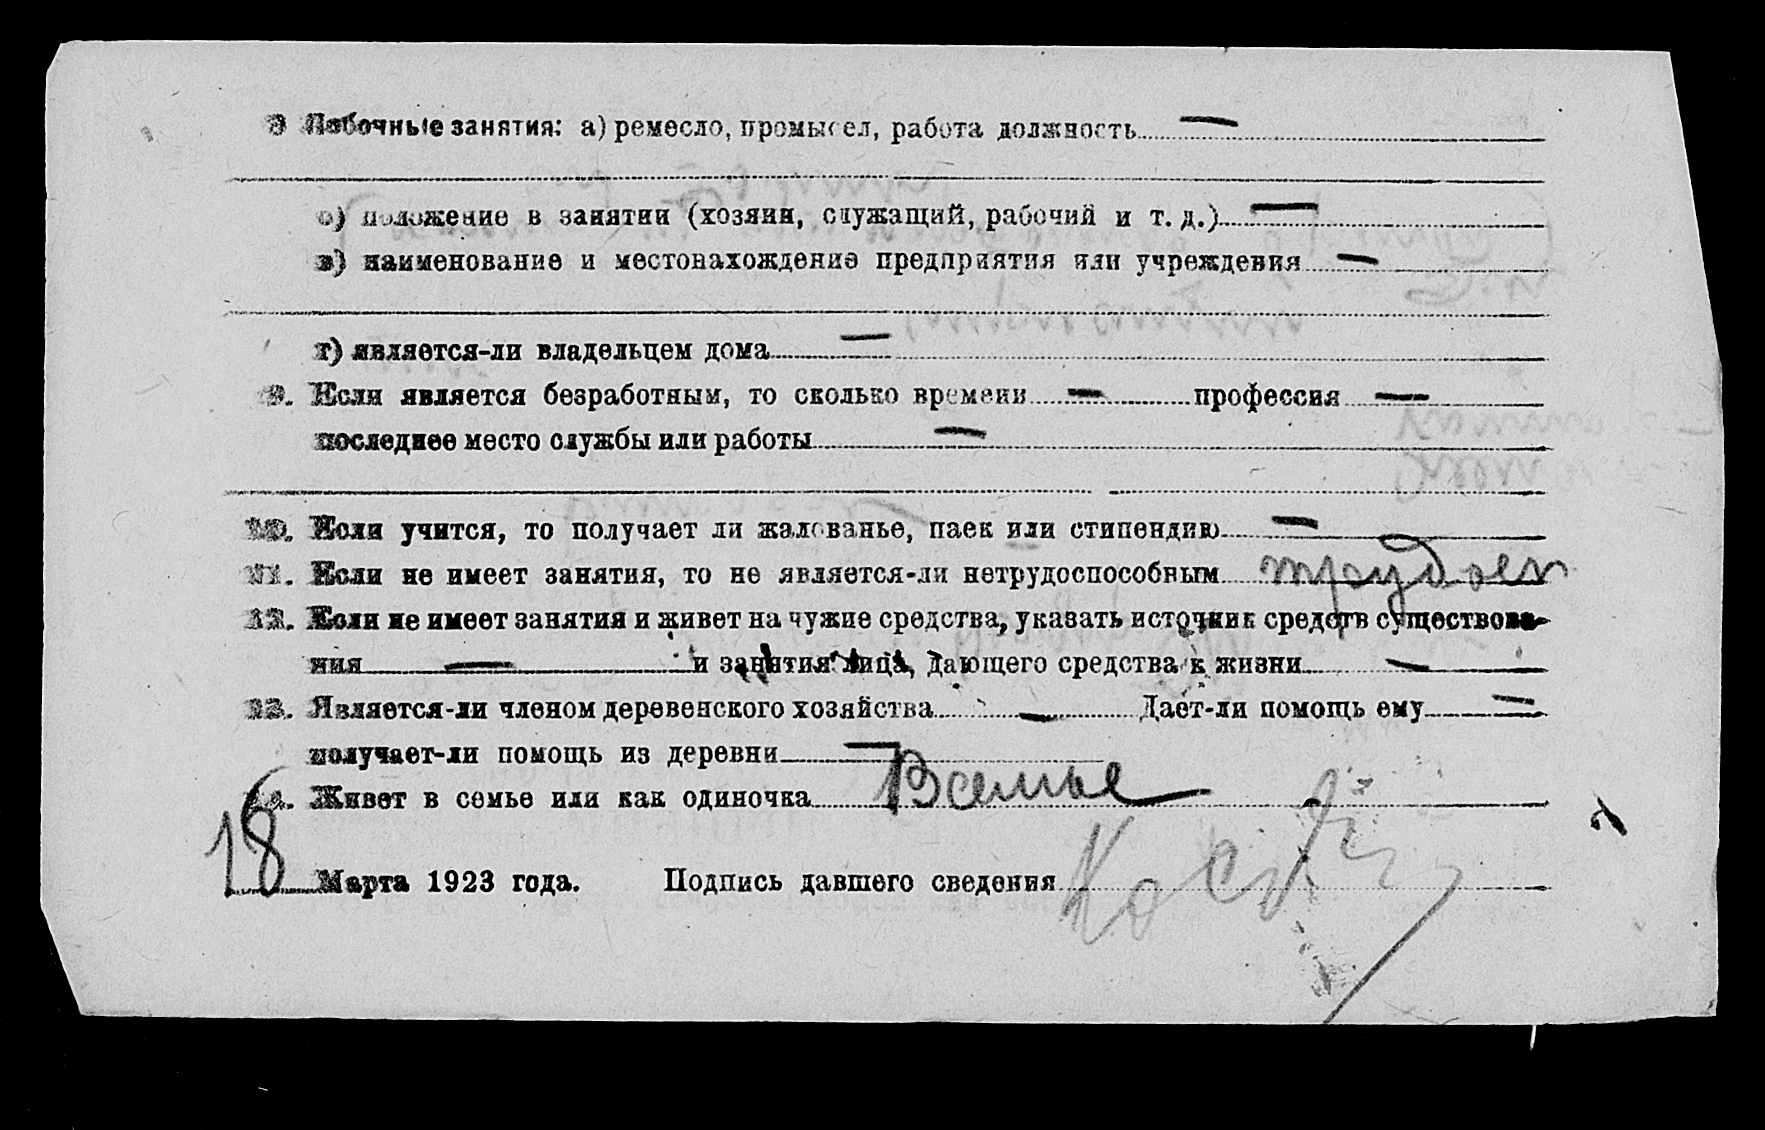 Побочные занятия: а) ремесло, промысел, работа должность —
б) положение в занятии (хозяин, служащий, рабочий и т. д.) —
в) наименование и местонахождение предприятия или учреждения —
г) является-ли владельцем дома —
9. Если является безработным, то сколько времени — профессия —
последнее место службы или работы —
10. Если учится, то получает ли жалованье, паек или стипендию —
11. Если не имеет занятия, то не является-ли нетрудоспособным трудосп
12. Если не имеет занятия и живет на чужие средства, указать источник средств существова-
ния — и занятия лица, дающего средства к жизни —
13. Является-ли членом деревенского хозяйства — Дает-ли помощь ему —
получает-ли помощь из деревни —
14. Живет в семье или как одиночка В семье
18 Марта 1923 года. Подпись давшего сведения